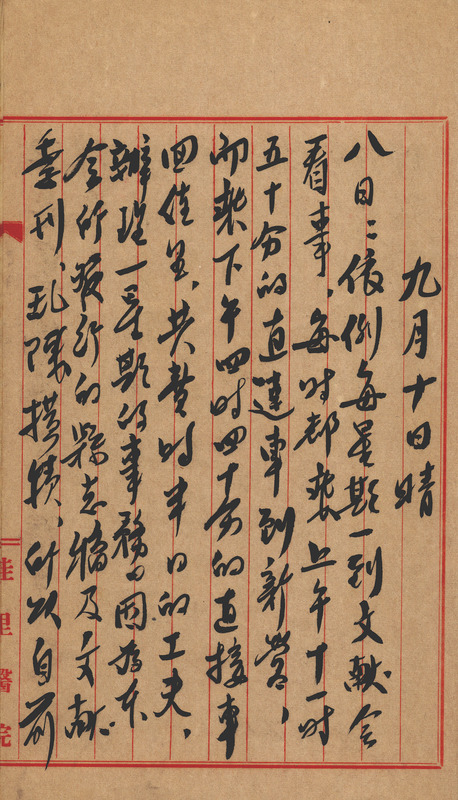 九月十日晴
八日:依例每星期一到文献会
看事、每时都乘上午十一时
五十分的直达車到新營,
而乘下午四时四十分的直接車
回佳里、共費时半日的工夫、
辦理一星期的事務日因為本
会所发行的縣志稿及文献
季刊、乱陈横積、所以自前
佳里醫院